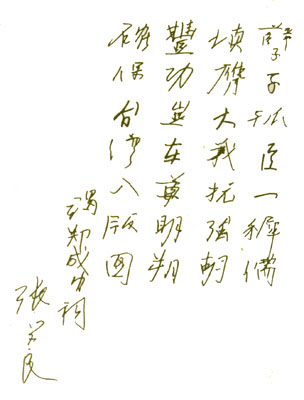 孽子孤臣一稺儒
填膺大義抗强胡
豐功豈在尊明朔
確保台灣入版圖
謁鄭成功祠
張学良